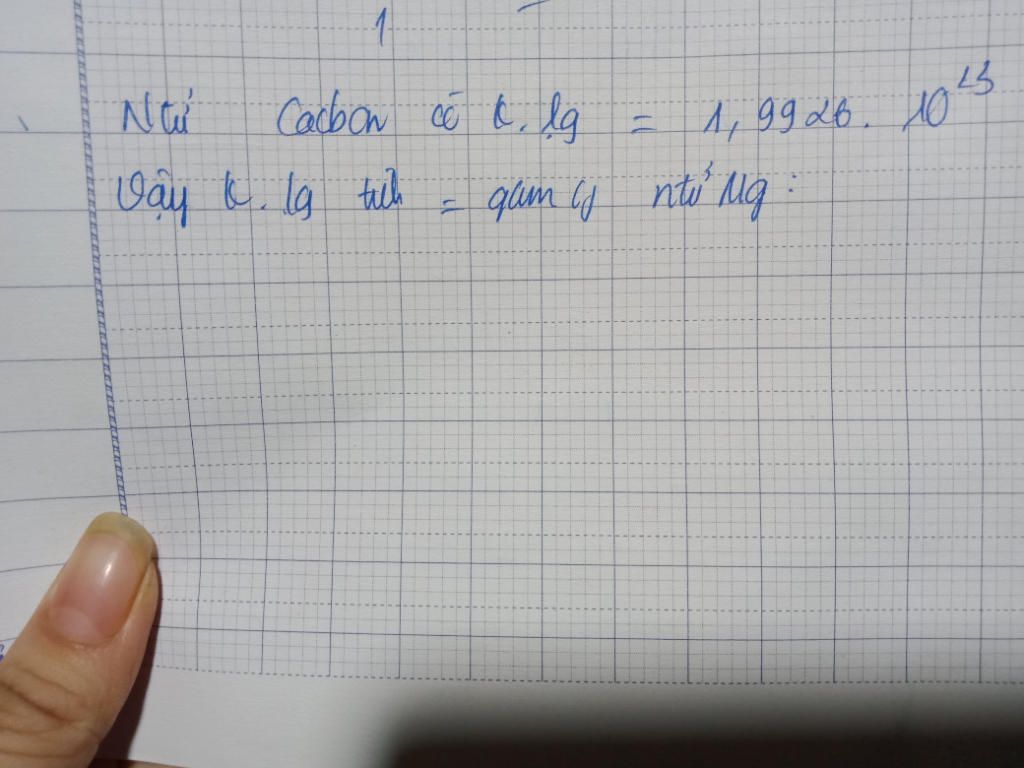 1
Ntử Cacbon có k.lg = 1,9926. 10²³
Vậy k.lg tính = gam củ ntử Mg: